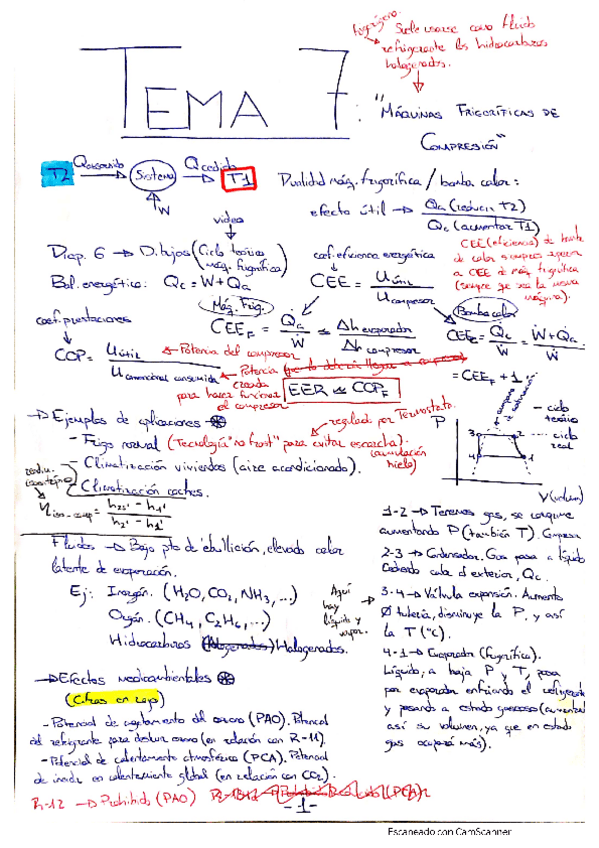 frigorígeno.
Suele usarse como fluido
refrigerante los hidrocarburos
halogenados.
TEMA 7 : "MÁQUINAS FRIGORÍFICAS DE
COMPRESIÓN"
T2 Qabsorbido Sistema Qcedido T1
W
Dualidad máq. frigorífica / bomba calor:
efecto útil → Qa (reducir T2)
Qc (aumentar T1)
video
Diap. 6 → Dibujos (Ciclo teórico
máq. frigorífica)
Bal. energético: Qc = W + Qa
coef. eficiencia energética
CEE = Uútil
Ucompresor
CEE (eficiencia) de bomba
de calor siempre
a CEE de máq. frigorífica
(siempre que sea la misma
máquina).
Máq. Frig.
CEE_F = Qa = Δh evaporador
W Δh compresor
Bomba calor
CEE_C = Qc = W + Qa
W W
= CEE_F + 1
coef. prestaciones
COP = Uútil
Potencia del compresor
U consumida
Potencia
para hacer funcionar
el compresor
EER COP_F
→ Ejemplos de aplicaciones
regulado por Termostato.
- Frigo normal (Tecnología "no frost" para evitar escarcha).
(acumulación
hielo)
- Climatización viviendas (aire acondicionado).
- Climatización coches.
= h2s' - h1'
h2' - h1'
P
- ciclo
teórico
- ciclo
real
3 2
4 1
V (volumen)
Fluidos → Bajo pto de ebullición, elevado calor
latente de evaporación.
Ej: Inorgán. (H2O, CO2, NH3, ...)
Orgán. (CH4, C2H6, ...)
Hidrocarburos Halogenados.
Aquí
hay
líquido y
vapor.
1-2 → Tenemos gas, se comprime
aumentando P (también T). Compresor
2-3 → Condensador. Gas pasa a líquido
Cediendo calor al exterior, Qc.
3-4 → Válvula expansión. Aumento
Ø tubería, disminuye la P, y así
la T (ºC).
4-1 → Evaporador (frigorífico).
Líquido, a baja P y T, pasa
por evaporador enfriando el refrigerante
y pasando a estado gaseoso (aumentando
así su volumen, ya que en estado
gas ocupará más).
→ Efectos medioambientales
(Cifras en rojo)
- Potencial de agotamiento del ozono (PAO). Potencial
del refrigerante para destruir ozono (en relación con R-11).
- Potencial de calentamiento atmosférico (PCA). Potencial
de incidir en calentamiento global (en relación con CO2).
R-12 → Prohibido (PAO)
- 1 -
Escaneado con CamScanner